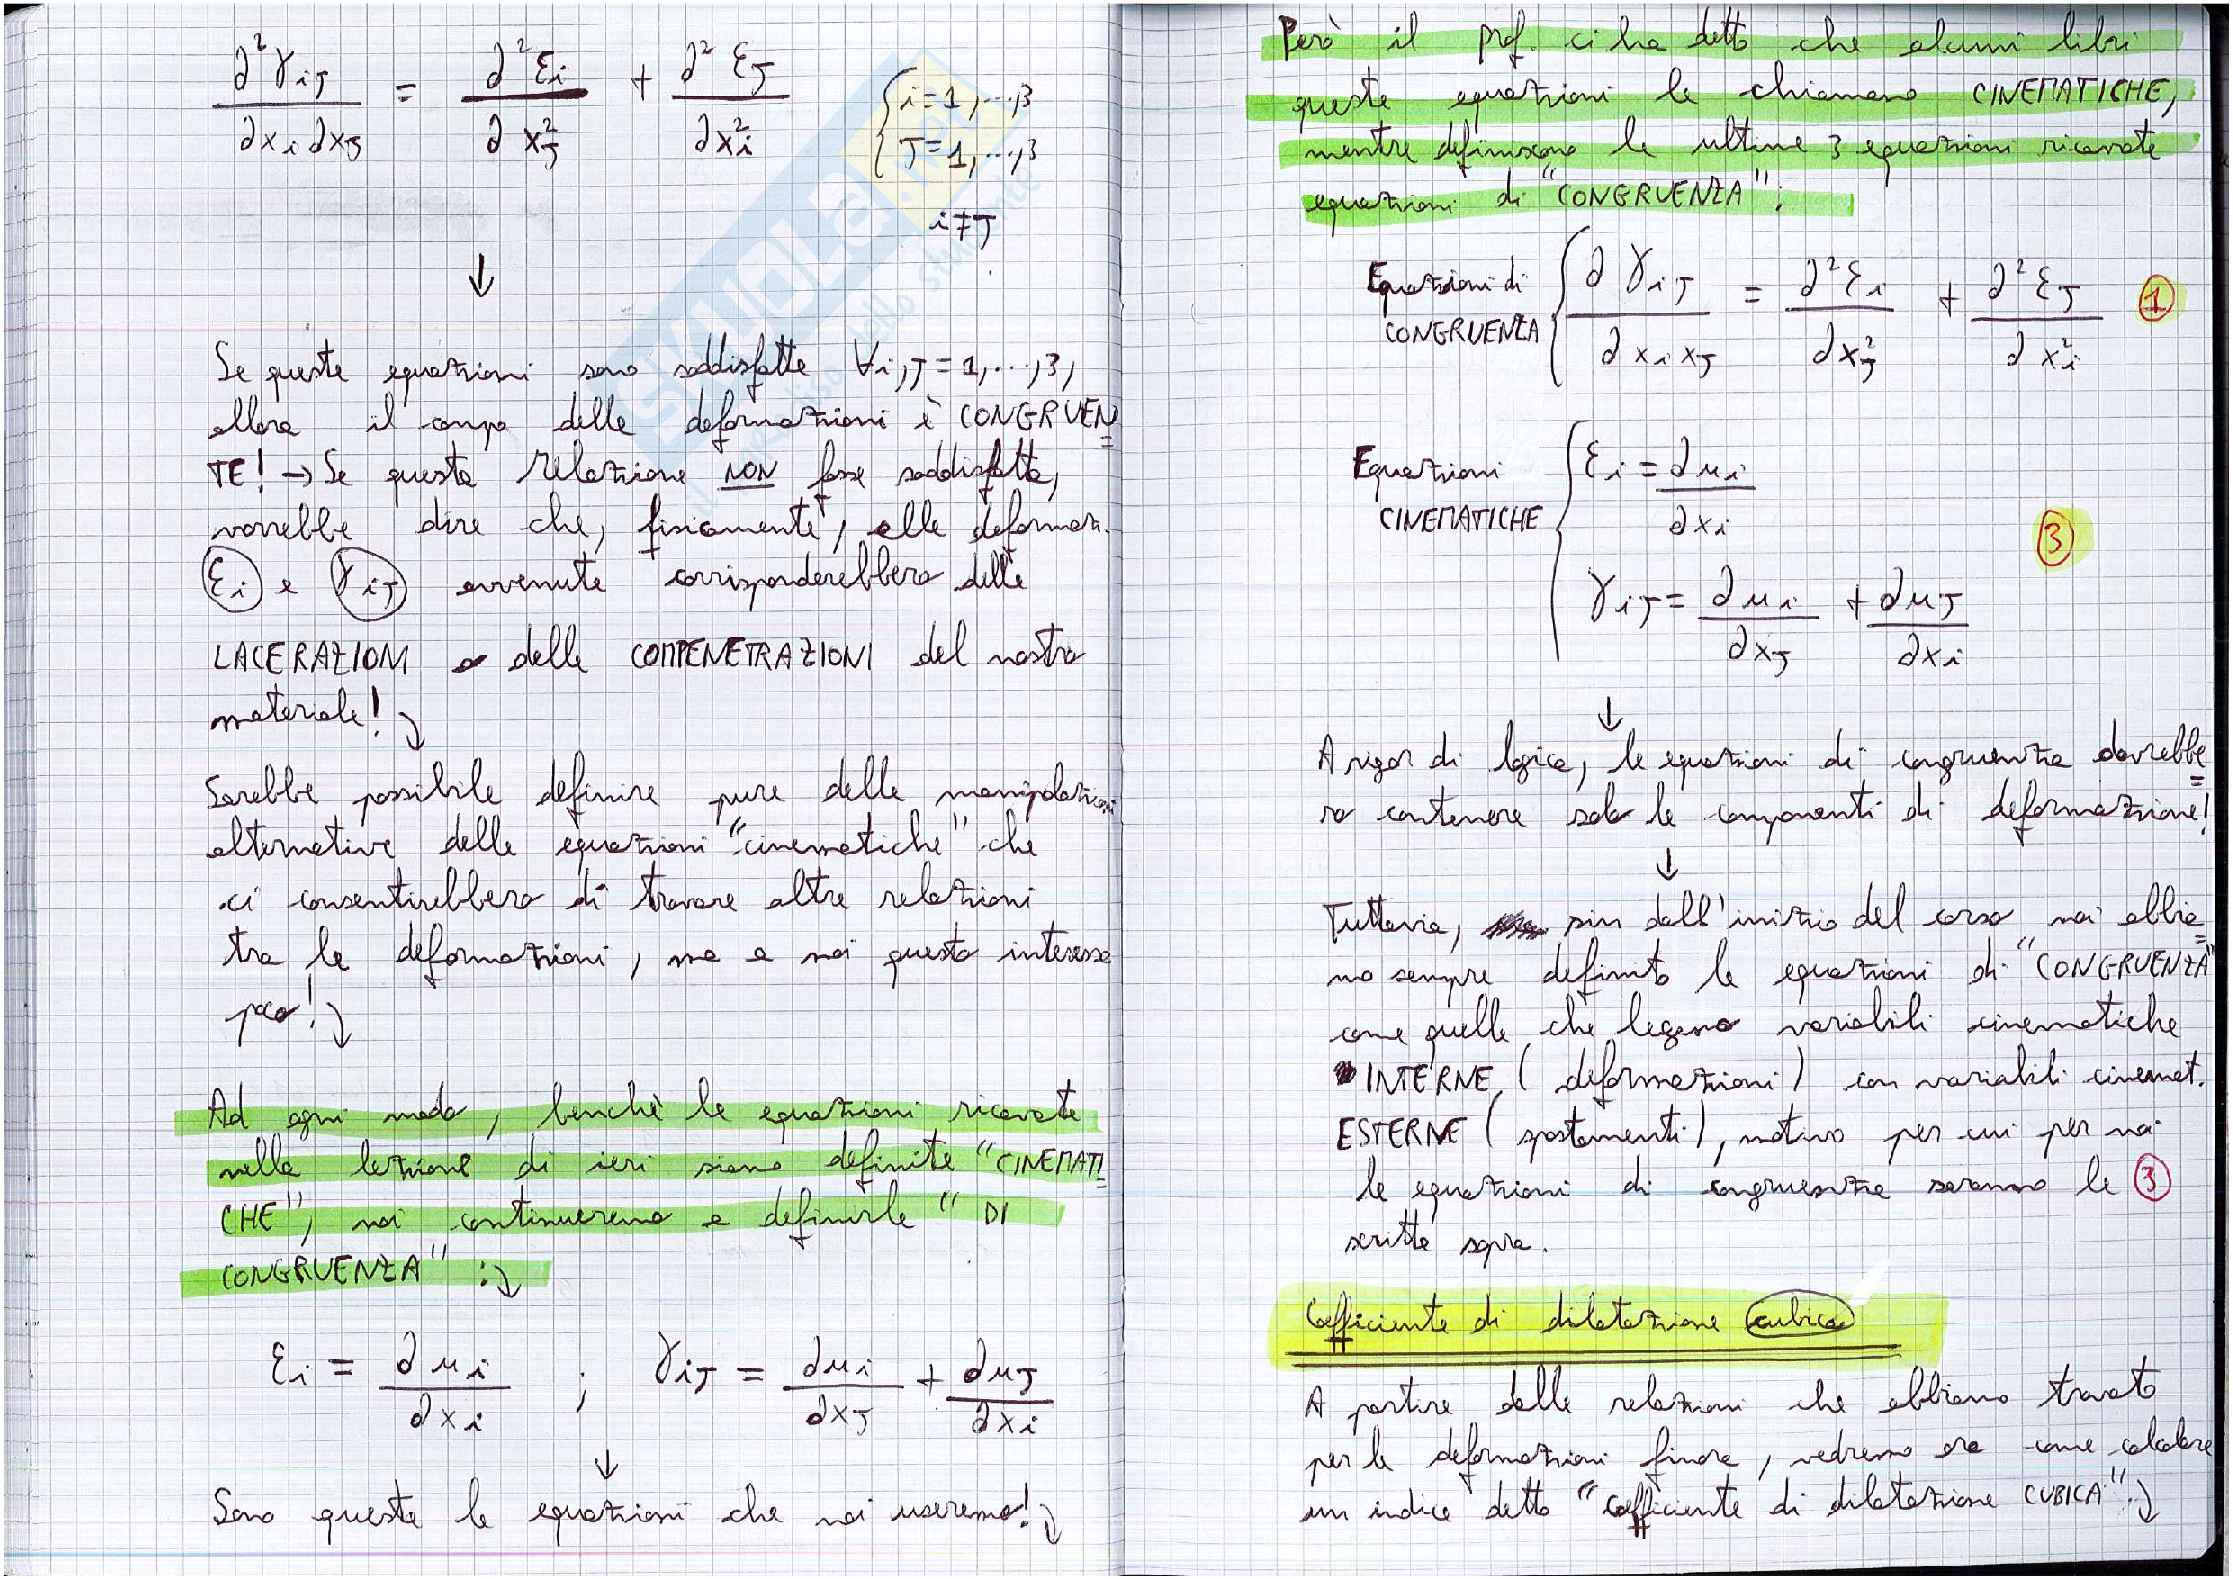 ∂²γiJ / ∂xi ∂xJ = ∂²εi / ∂xJ² + ∂²εJ / ∂xi² { i=1,...,3
J=1,...,3
i≠J
↓
Se queste equazioni sono soddisfatte ∀i,J=1,...,3,
allora il campo delle deformazioni è CONGRUEN
TE! → Se questa relazione NON fosse soddisfatta,
vorrebbe dire che, fisicamente, alle deformaz.
εi e γiJ avvenute corrisponderebbero delle
LACERAZIONI o delle COMPENETRAZIONI del nostro
materiale!
Sarebbe possibile definire pure delle manipolazioni
alternative delle equazioni "cinematiche" che
ci consentirebbero di trovare altre relazioni
tra le deformazioni, ma a noi questo interessa
poco!
Ad ogni modo, benchè le equazioni ricavate
nella lezione di ieri siano definite "CINEMATI
CHE", noi continueremo a definirle "DI
CONGRUENZA":
εi = ∂ui / ∂xi ; γiJ = ∂ui / ∂xJ + ∂uJ / ∂xi
↓
Sono queste le equazioni che noi useremo!
Però il prof. ci ha detto che alcuni libri
queste equazioni le chiamano CINEMATICHE,
mentre definiscono le ultime 3 equazioni ricavate
equazioni di "CONGRUENZA":
Equazioni di
CONGRUENZA { ∂γiJ / ∂xi xJ = ∂²εi / ∂xJ² + ∂²εJ / ∂xi² 1
Equazioni
CINEMATICHE { εi = ∂ui / ∂xi
3
γiJ = ∂ui / ∂xJ + ∂uJ / ∂xi
↓
A rigor di logica, le equazioni di congruenza dovrebbe
ro contenere solo le componenti di deformazione!
↓
Tuttavia, sin dall'inizio del corso noi abbia
mo sempre definito le equazioni di "CONGRUENZA"
come quelle che legano variabili cinematiche
INTERNE (deformazioni) con variabili cinemat.
ESTERNE (spostamenti), motivo per cui per noi
le equazioni di congruenza saranno le 3
scritte sopra.
Coefficiente di dilatazione cubica
A partire dalle relazioni che abbiamo trovato
per le deformazioni finora, vedremo ora come calcolare
un indice detto "coefficiente di dilatazione CUBICA":